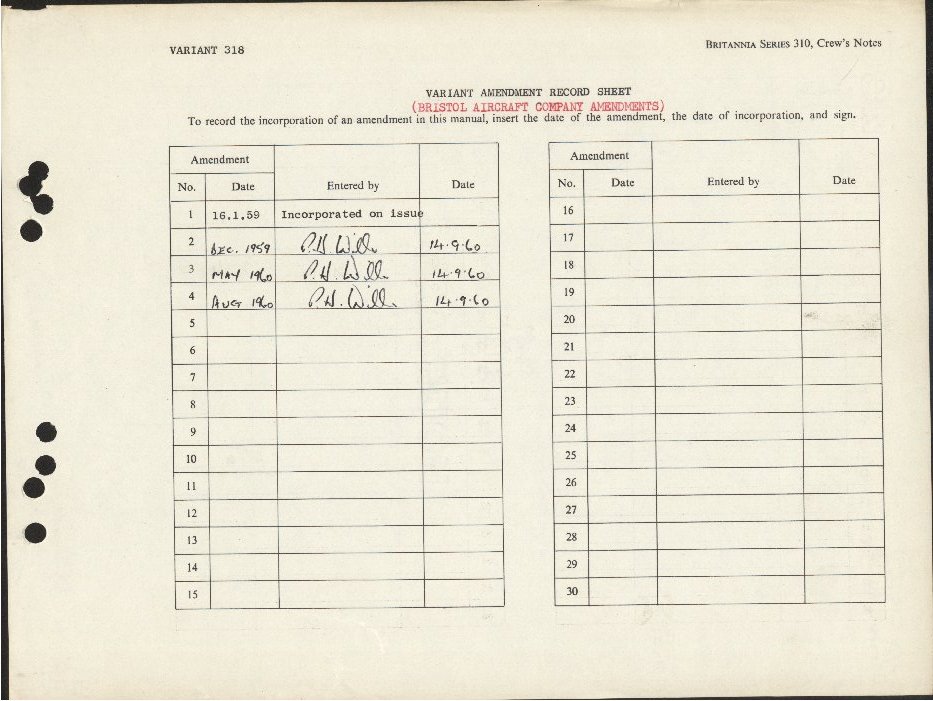 VARIANT 318
BRITANNIA SERIES 310, Crew's Notes
VARIANT AMENDMENT RECORD SHEET
(BRISTOL AIRCRAFT COMPANY AMENDMENTS)
To record the incorporation of an amendment in this manual, insert the date of the amendment, the date of incorporation, and sign.
Amendment
No. Date Entered by Date
1 16.1.59 Incorporated on issue
2 DEC. 1959 14.9.60
3 MAY 1960 14.9.60
4 AUG 1960 14.9.60
5
6
7
8
9
10
11
12
13
14
15
Amendment
No. Date Entered by Date
16
17
18
19
20
21
22
23
24
25
26
27
28
29
30